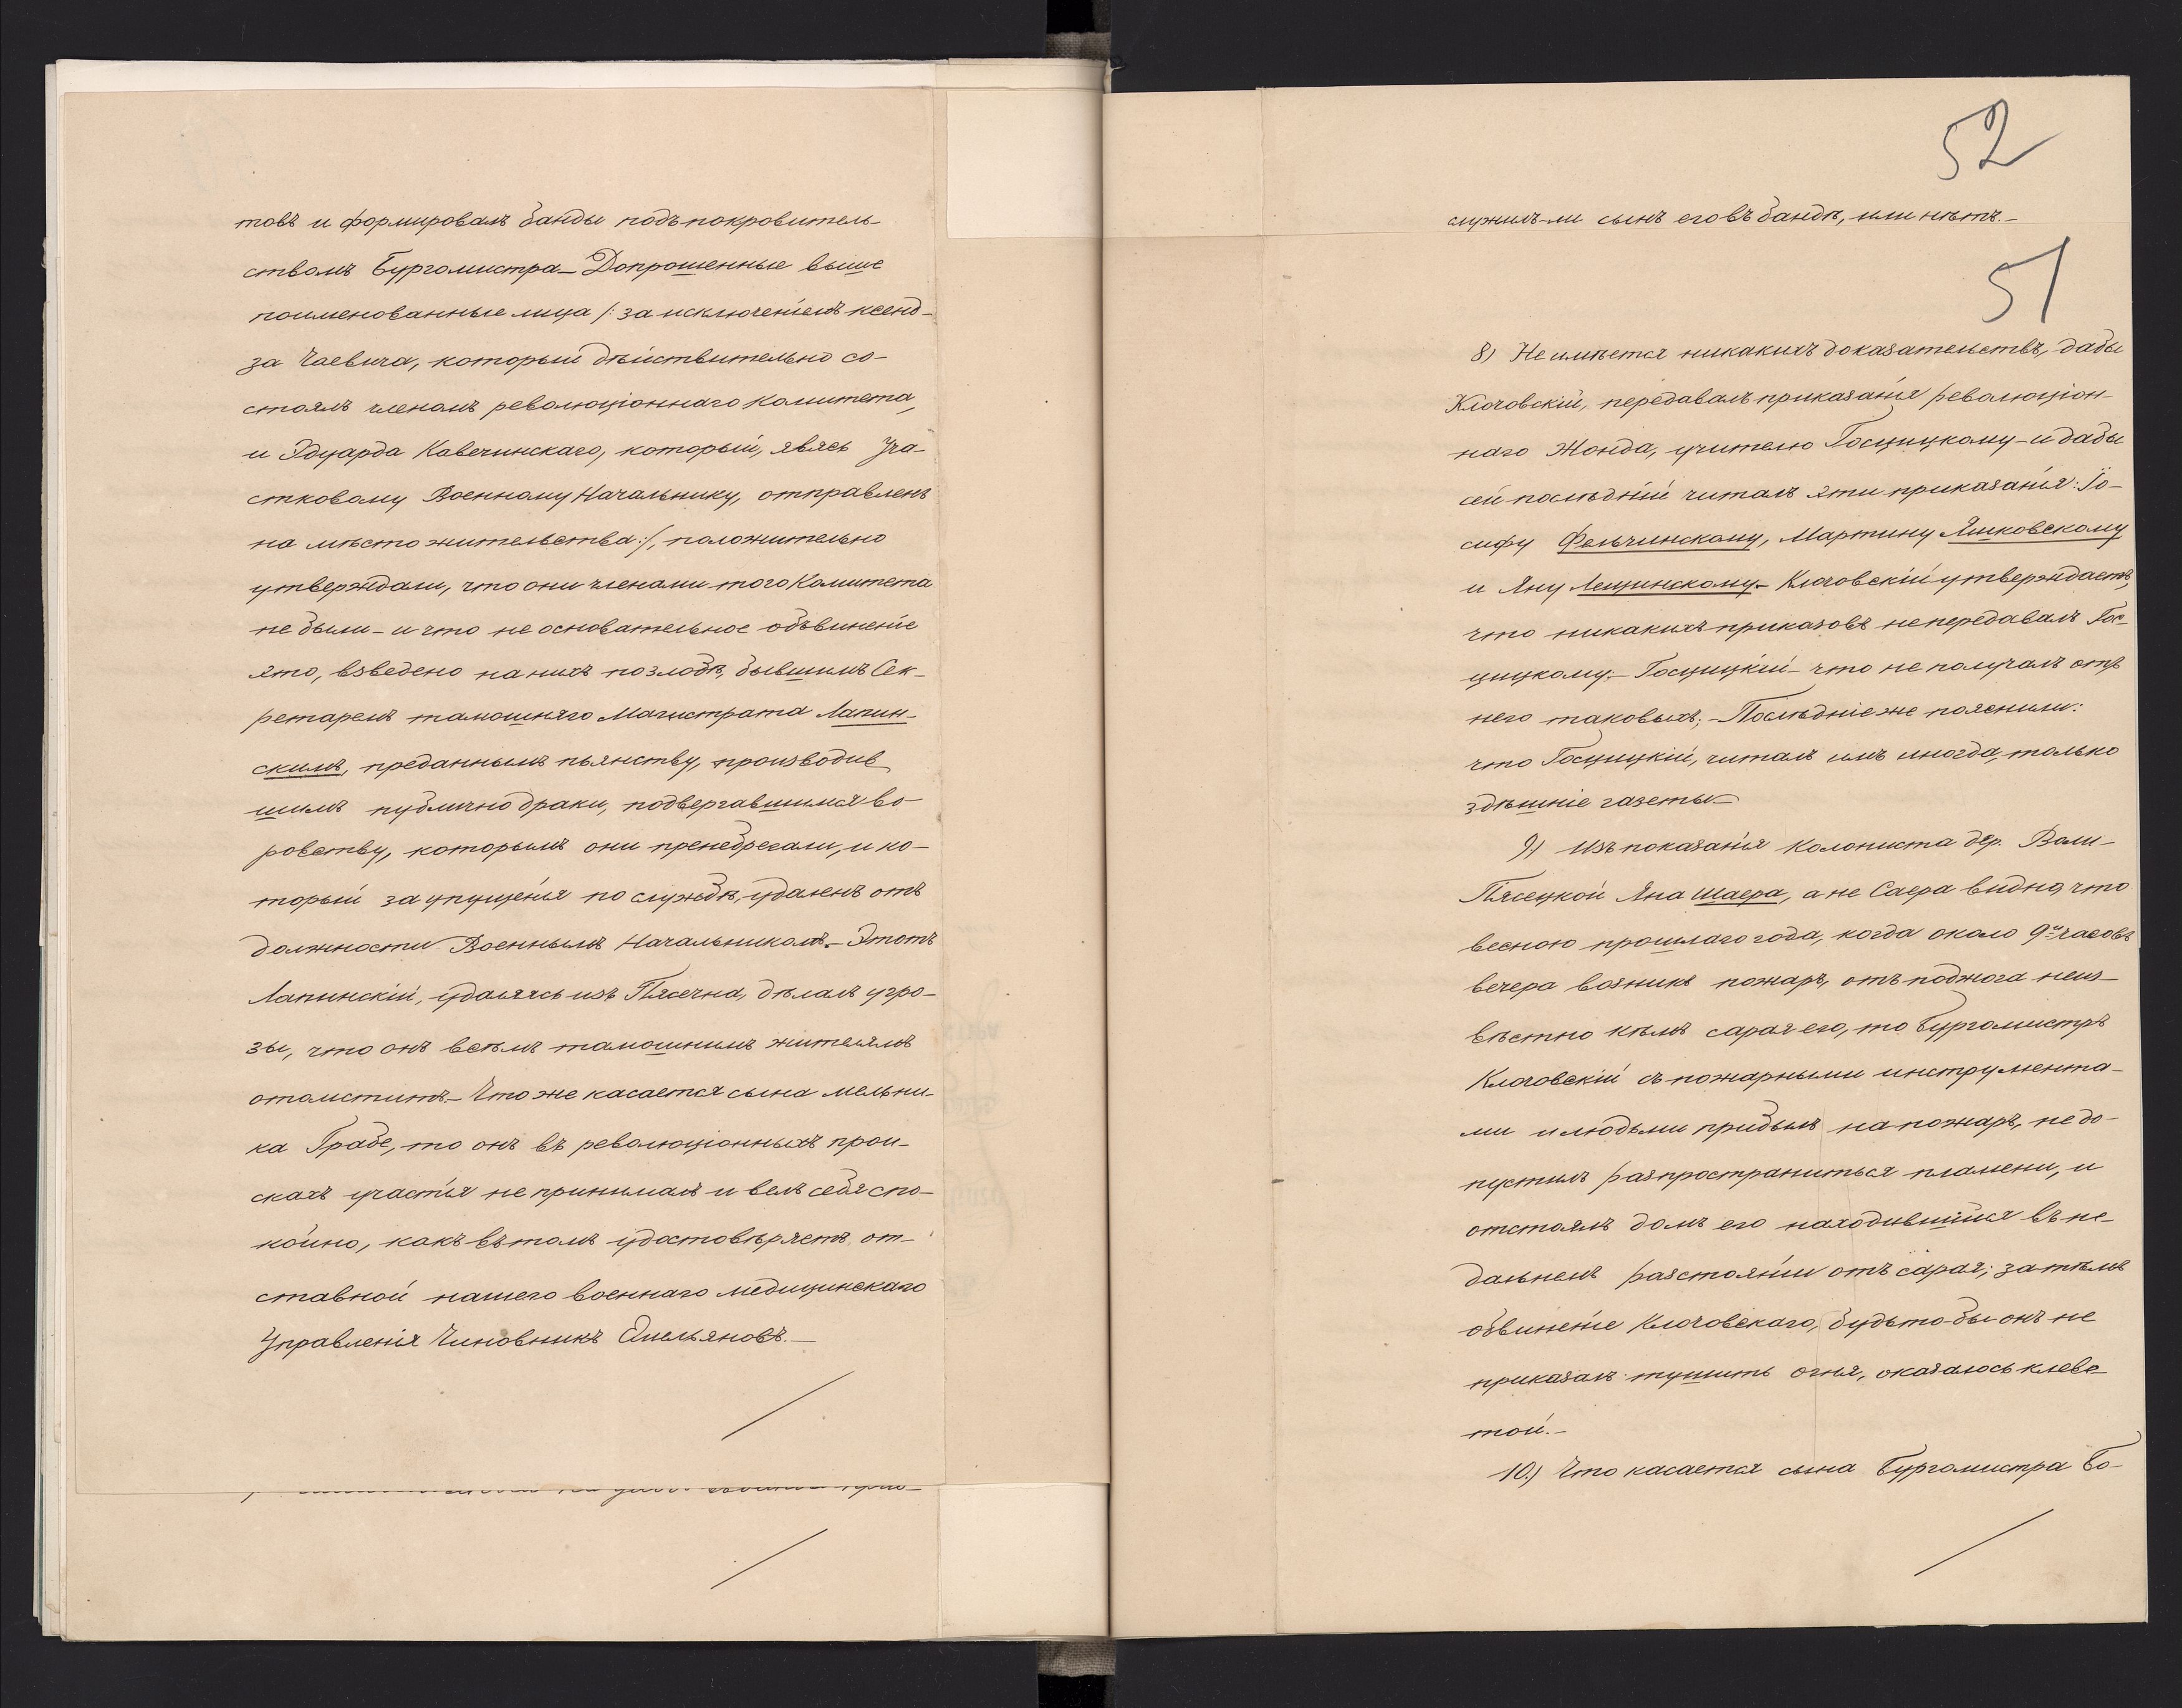 товъ и формировалъ банды подъ покровитель-
ствомъ Бургомистра_ Допрошенные выше
поименованные лица /: за исключеніемъ ксенд-
за Чаевича, который дѣйствительно со-
стоялъ членомъ революціоннаго Комитета,
и Эдуарда Кавечинскаго, который, явясь Уча-
стковому Военному Начальнику, отправленъ
на мѣсто жительства:/, положительно
утверждали, что они членами того Комитета
не были - и что не основательное объвиненіе
это, взведено на нихъ по злобѣ, бывшимъ Сек-
ретаремъ тамошняго Магистрата Лапин-
скимъ, преданнымъ пьянству, производив
шимъ публично драки, подвергавшимся во-
ровству, которымъ они пренебрегали, и ко-
торый за упущенія по службѣ, удаленъ отъ
должности Военнымъ Начальникомъ.- Этотъ
Лапинскій, удаляясь изъ Пясечна, дѣлалъ угро-
зы, что онъ всѣмъ тамошнимъ жителямъ
отомститъ.- Что же касается сына мельни-
ка Грабе, то онъ въ революціонныхъ прои-
скахъ участія не принималъ и велъ себя спо-
койно, какъ въ томъ удостовѣряетъ от-
ставной нашего военнаго медицинскаго
Управленія Чиновникъ Омельяновъ.-
52
служилъ-ли сынъ его въ бандѣ, или нѣтъ.-
51
8) Не имѣется никакихъ доказательствъ, дабы
Клочовскій, передавалъ приказанія революціон-
наго Жонда, учителю Госцицкому - и дабы
сей послѣдній читалъ эти приказанія: Іо-
сифу Фельчинскому, Мартину Яшковскому
и Яну Лещинскому.- Клочовскій утверждаетъ,
что никакихъ приказовъ не передавалъ Гос-
цицкому;- Госцицкій - что не получалъ отъ
него таковыхъ;- Послѣдніе же пояснили:
что Госцицкій, читалъ имъ иногда, только
здѣшніе газеты.-
9) Изъ показанія Колониста дер. Воли-
Пясецкой Яна Шаера, а не Саера видно, что
весною прошлаго года, когда около 9и часовъ
вечера возникъ пожаръ, отъ поджога неиз-
вѣстно кѣмъ сарая его, то Бургомистръ
Клочовскій съ пожарными инструмента-
ми и людьми прибылъ на пожаръ, не до-
пустилъ разпространиться пламени, и
отстоялъ домъ его находившійся въ не-
дальнемъ разстояніи отъ сарая; за тѣмъ
обвиненіе Клочовскаго, будьто-бы онъ не
приказалъ тушить огня, оказалось клеве-
той.-
10.) Что касается сына Бургомистра Бо-